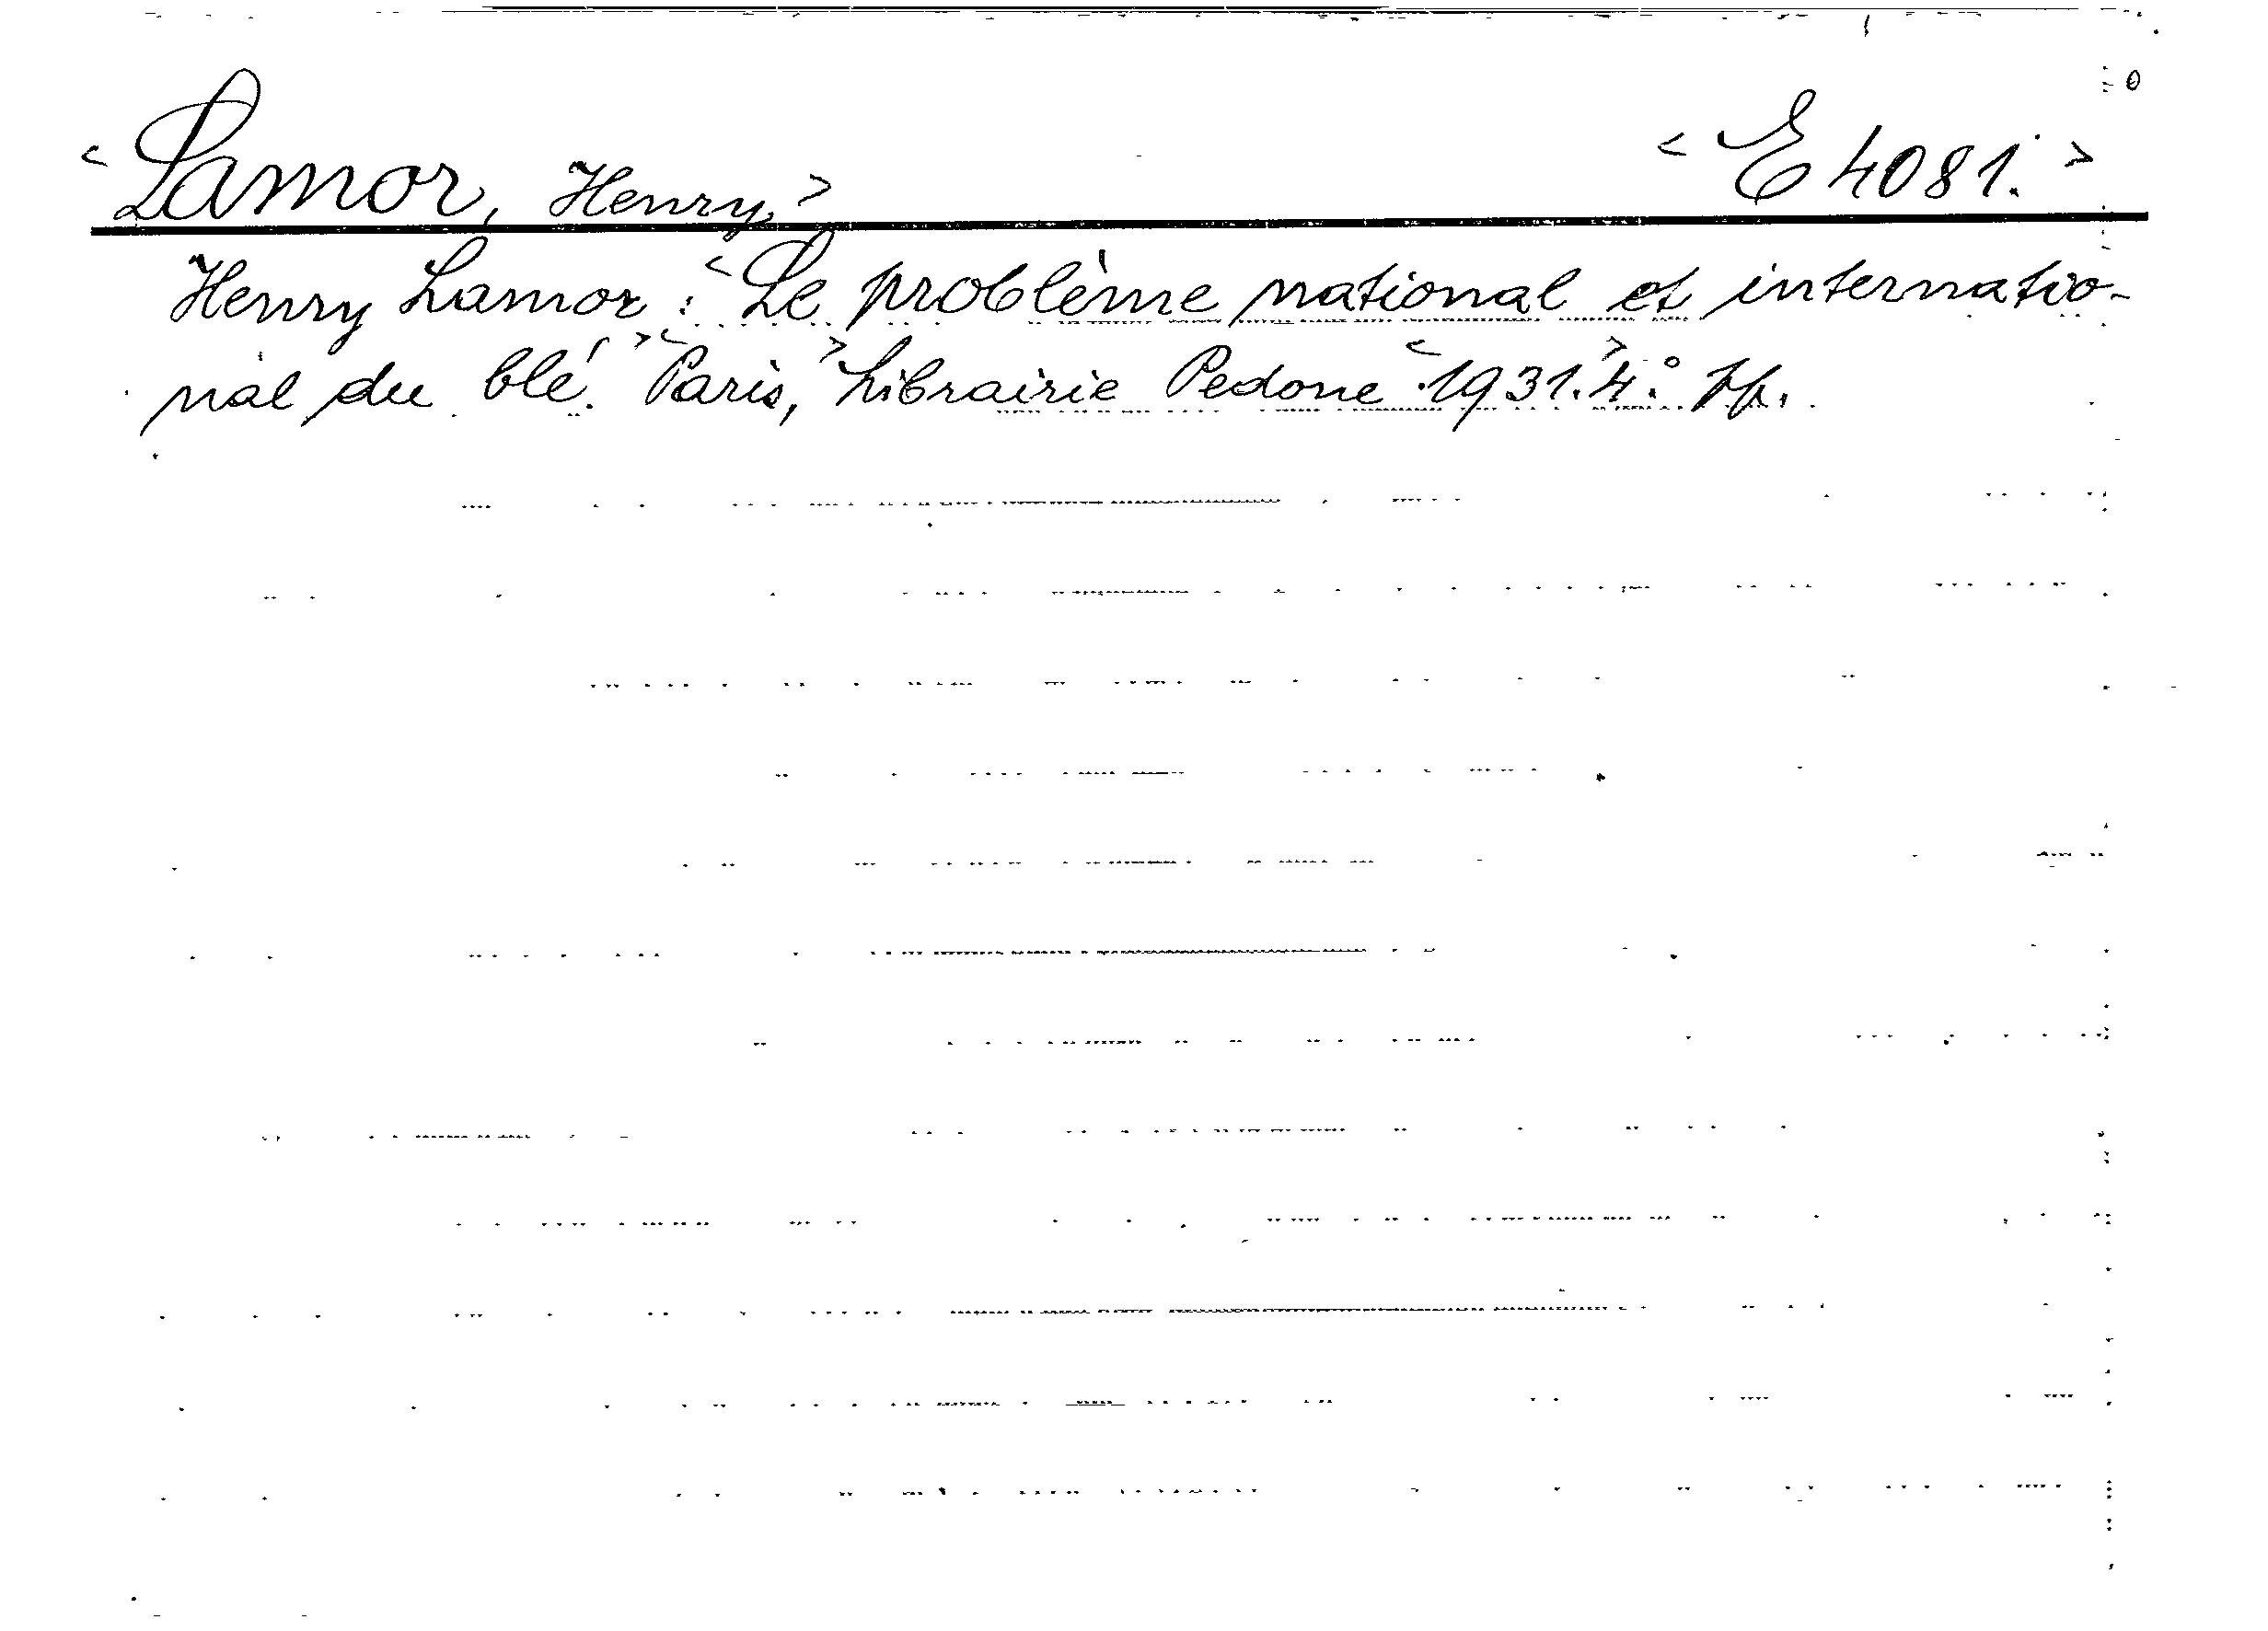 <Lamor, Henry,> <E 4081.>
Henry Lamor: <Le problème national et internatio-
nal du blé.> <Paris,> Librairie Pedone <1931.> 4.°